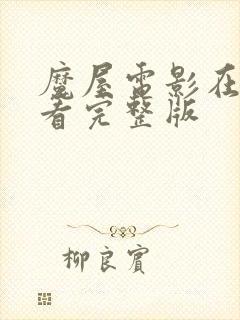 魔屋电影在
看完整版
柳良賓